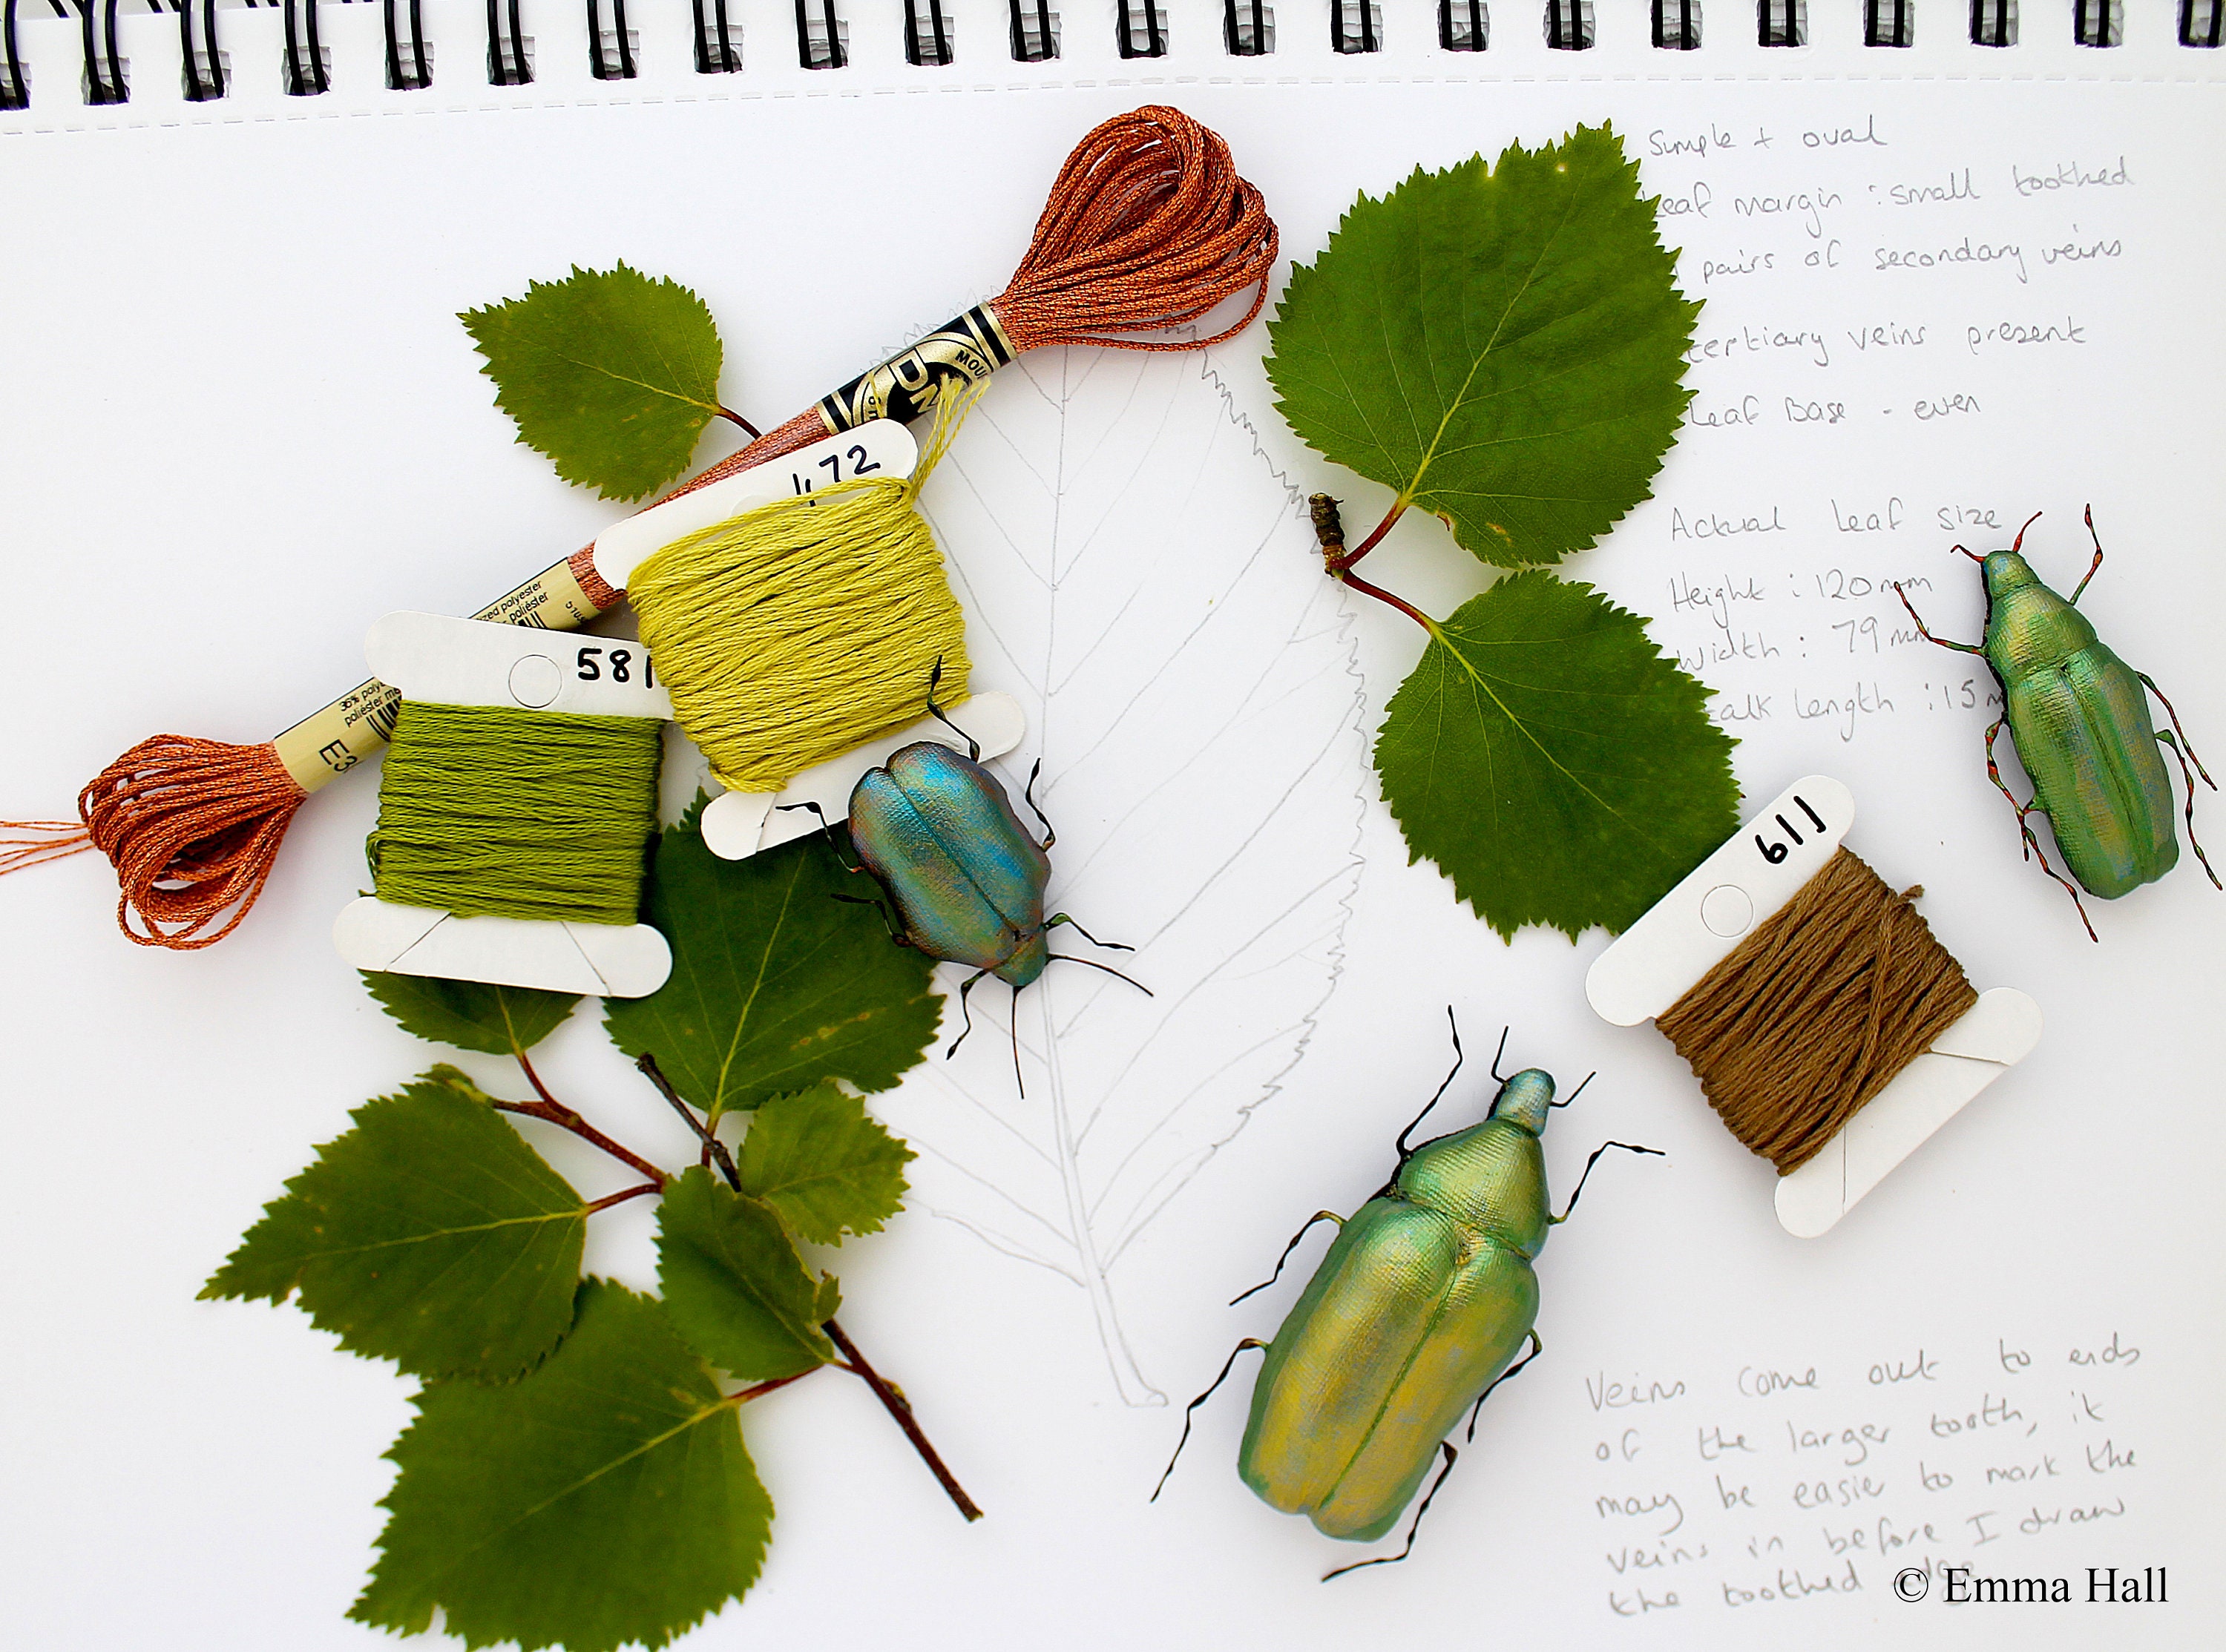 Simple + oval
Leaf margin : small toothed
pairs of secondary veins
tertiary veins present
Leaf Base - even
Actual leaf size
Height : 120mm
Width : 79mm
talk length : 15m
MOU
472
polyester
polièster
581
36% poly
poliéster
E3
611
Veins come out to ends
of the larger tooth, it
may be easier to mark the
veins in before I draw
the toothed edge
© Emma Hall